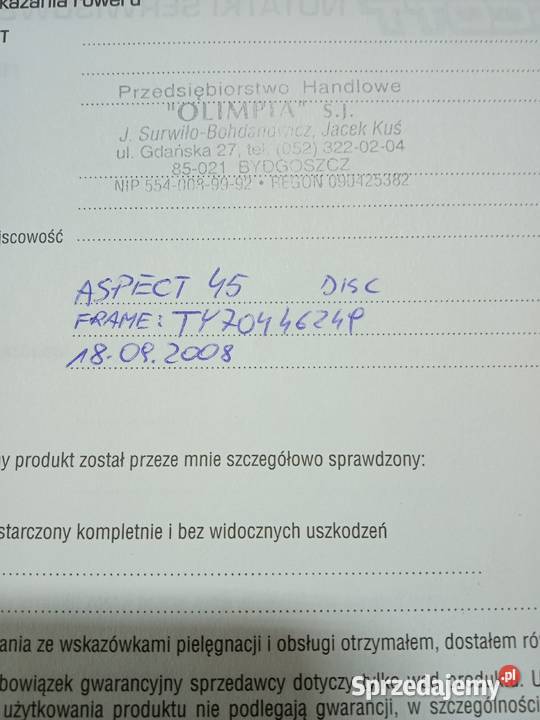 kazania roweru
NOTATKI SERWISOWE
T
Przedsiębiorstwo Handlowe
"OLIMPIA" s.j.
J. Surwiło-Bohdanowicz, Jacek Kuś
ul. Gdańska 27, tel. (052) 322-02-04
85-021 BYDGOSZCZ
NIP 554-008-99-92 • REGON 090425382
jscowość
ASPECT 45 DISC
FRAME: TY70446249
18.09.2008
y produkt został przeze mnie szczegółowo sprawdzony:
starczony kompletnie i bez widocznych uszkodzeń
ania ze wskazówkami pielęgnacji i obsługi otrzymałem, dostałem ró
bowiązek gwarancyjny sprzedawcy dotyczy tylko wad produktu. U
użytkowania produktu nie podlegają gwarancji, w szczególności
Sprzedajemy.pl